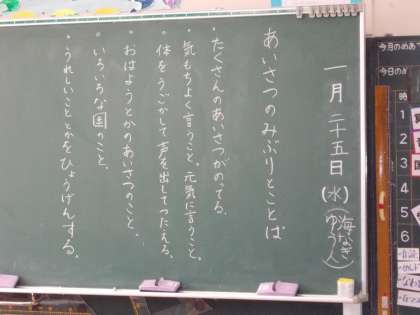 一月二十五日(水)
あいさつのみぶりとことば
・たくさんのあいさつがのってる。
・気もちよく言うこと。元気に言うこと。
・体をうごかして声を出してつたえる。
・おはようとかのあいさつのこと。
・いろいろな国のこと。
・うれしいこととかをひょうげんする。
今月のめあ
今日のめ
時
1
2
3
4
5
6